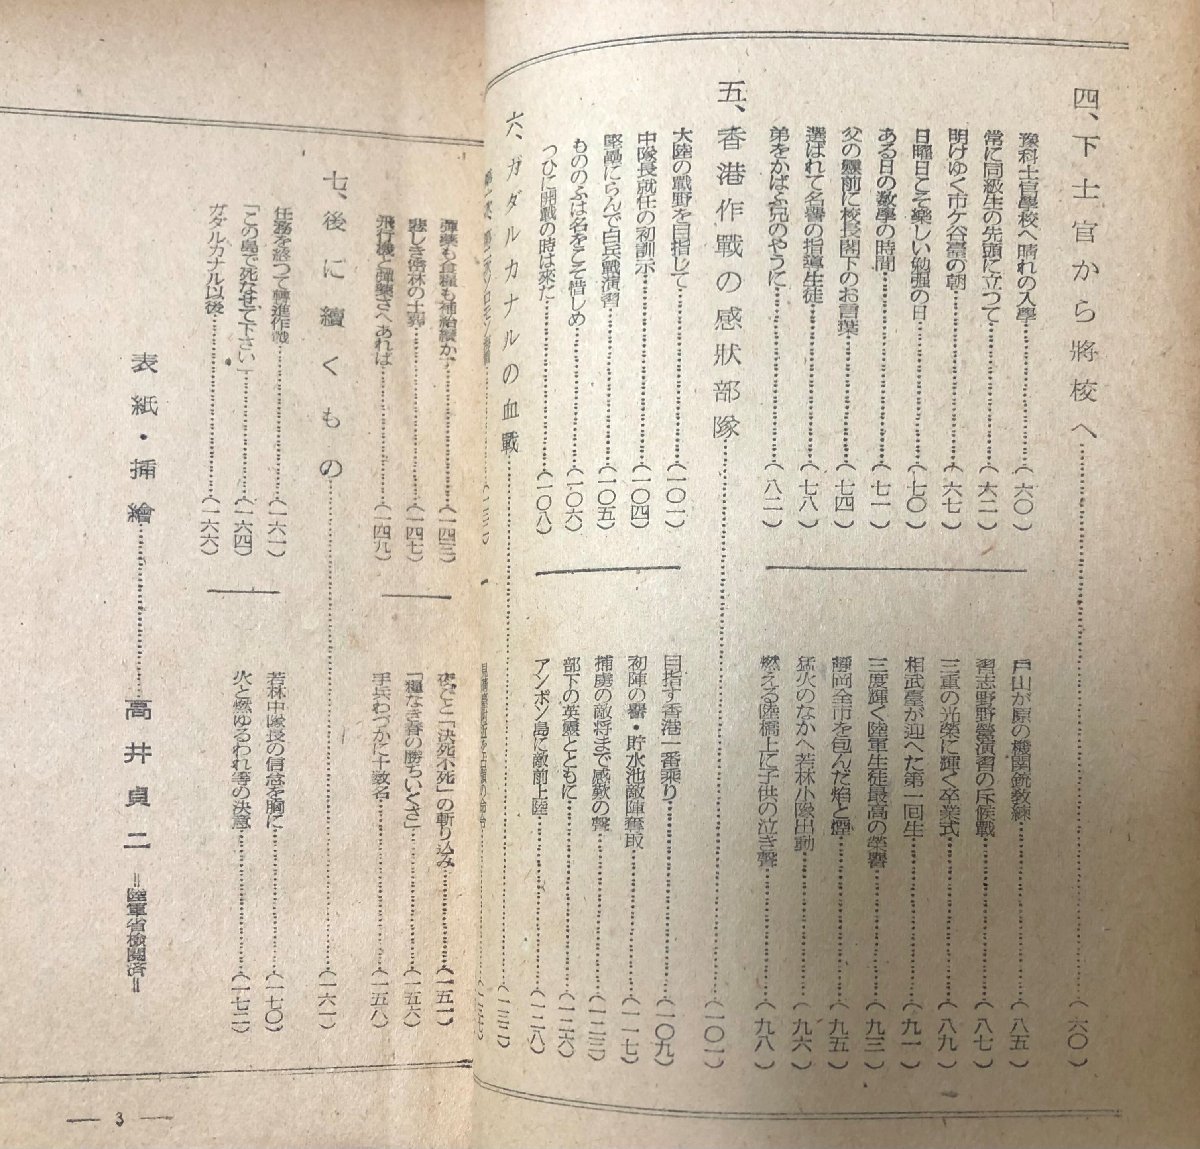 四、下士官から將校へ……(六〇)
豫科士官學校へ晴れの入學……(六〇)
常に同級生の先頭に立つて……(六二)
明けゆく市ケ谷臺の朝……(六七)
日曜日こそ樂しい勉强の日……(七〇)
ある日の數學の時間……(七一)
父の靈前に校長閣下のお言葉……(七四)
選ばれて名譽の指導生徒……(七八)
弟をかばふ兄のやうに……(八二)
戸山が原の機関銃教練……(八五)
習志野野營演習の斥候戰……(八七)
三重の光榮に輝く卒業式……(八九)
相武臺が迎へた第一回生……(九一)
三度輝く陸軍生徒最高の榮譽……(九三)
靜岡全市を包んだ焰と煙……(九五)
猛火のなかへ若林小隊出動……(九六)
燃える陸橋上に子供の泣き聲……(九八)
五、香港作戰の感狀部隊……(一〇一)
大陸の戰野を目指して……(一〇一)
中隊長就任の初訓示……(一〇四)
堅壘にらんで白兵戰演習……(一〇五)
もののふは名をこそ惜しめ……(一〇六)
つひに開戰の時は來た……(一〇八)
目指す香港一番乘り……(一〇九)
初陣の譽・貯水池敵陣奪取……(一一七)
捕虜の敵将まで感歎の聲……(一二三)
部下の英靈とともに……(一二六)
アンボン島に敵前上陸……(一二八)
六、ガダルカナルの血戰……(一三二)
彈藥も食糧も補給續かず……(一四三)
悲しき密林の土葬……(一四七)
飛行機と彈藥さへあれば……(一四九)
夜ごと「決死不死」の斬り込み……(一五一)
「糧なき春の勝ちいくさ」……(一五六)
手兵わづかに十数名……(一五八)
七、後に續くもの……(一六一)
任務を終つて轉進作戰……(一六一)
「この島で死なせて下さい」……(一六四)
ガダルカナル以後……(一六六)
若林中隊長の信念を胸に……(一七〇)
火と燃ゆるわれ等の決意……(一七二)
表紙・揷繪……高井貞二
=陸軍省檢閱済=
— 3 —